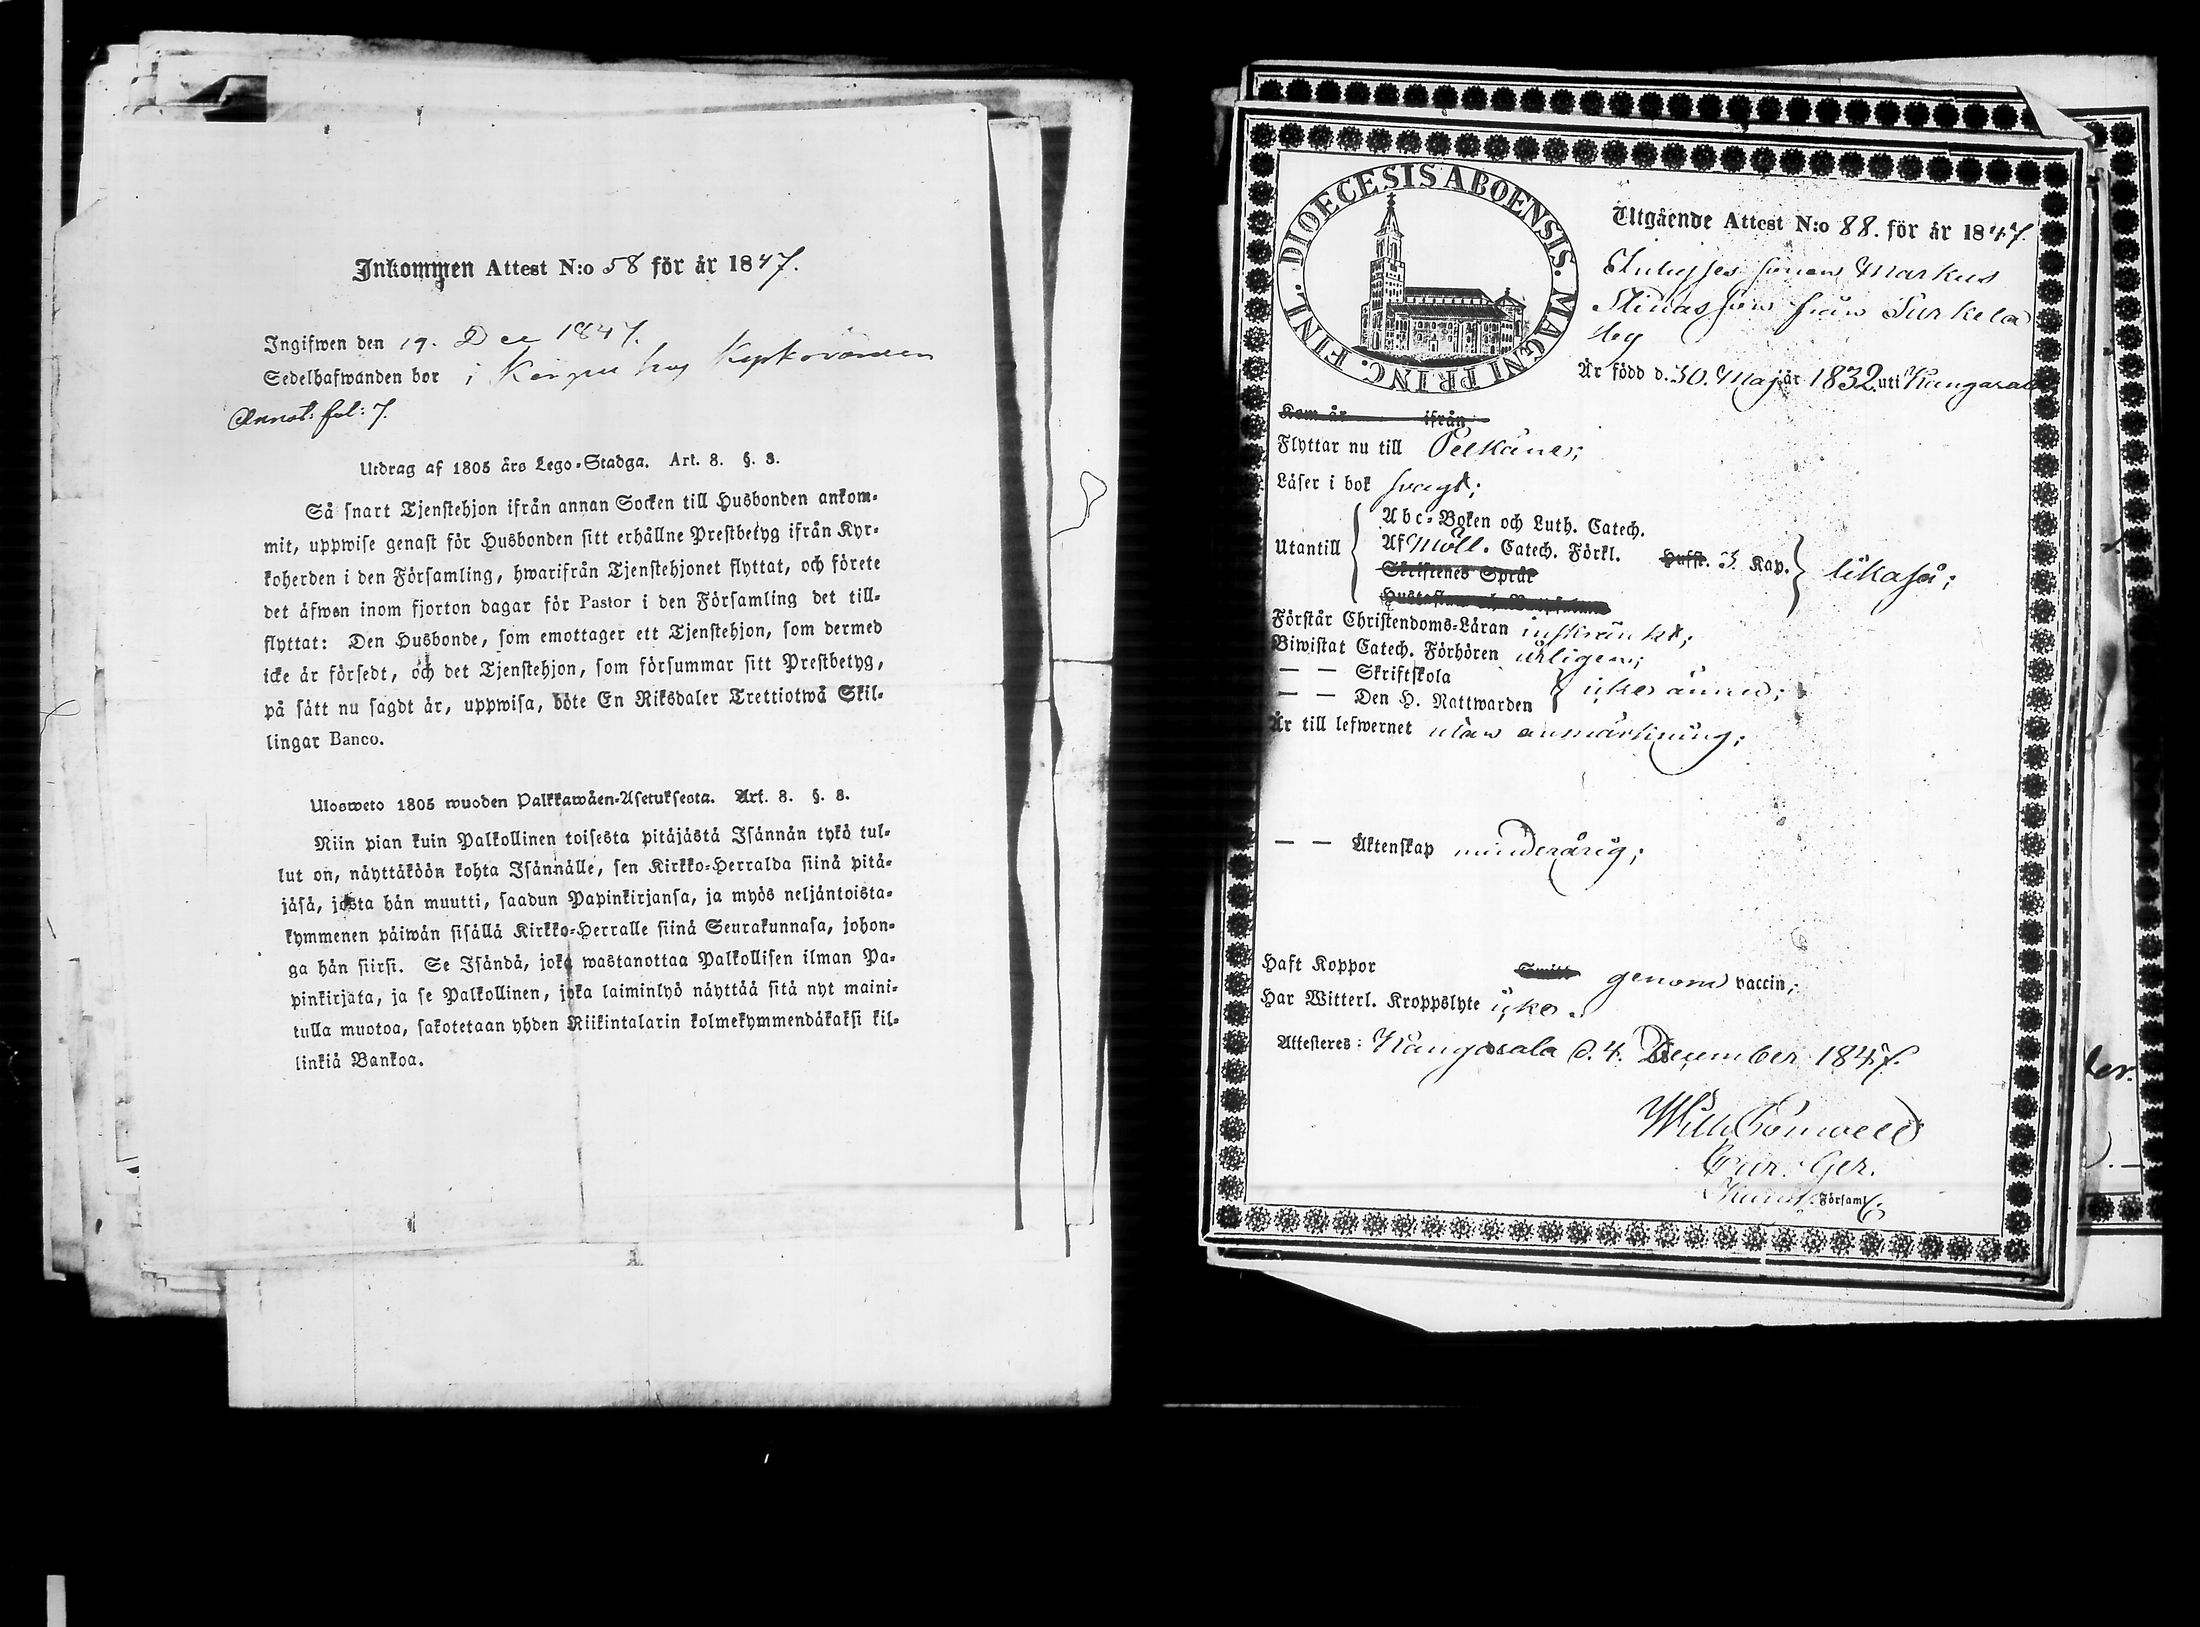 Inkommen Attest N:o 58 för år 1847.
Ingifwen den 19. Dec 1847.
Sedelhafwanden bor i
Annot: fol: 7.
Utdrag af 1805 års Lego-Stadga. Art. 8. §. 8.
Så snart Tjenstehjon ifrån annan Socken till Husbonden ankom-
mit, uppwise genast för Husbonden sitt erhållne Prestbetyg ifrån Kyr-
koherden i den Församling, hwarifrån Tjenstehjonet flyttat, och förete
det äfwen inom fjorton dagar för Pastor i den Församling det till-
flyttat: Den Husbonde, som emottager ett Tjenstehjon, som dermed
icke är försedt, och det Tjenstehjon, som försummar sitt Prestbetyg,
på sätt nu sagdt är, uppwisa, böte En Riksdaler Trettiotwå Skil-
lingar Banco.
Ulosweto 1805 wuoden Palkkawäen-Asetuksesta. Art. 8. §. 8.
Niin pian kuin Palkollinen toisesta pitäjästä Isännän tykö tul-
lut on, näyttäköön kohta Isännälle, sen Kirkko-Herralda siinä pitä-
jäsä, josta hän muutti, saadun Papinkirjansa, ja myös neljäntoista-
kymmenen päiwän sisällä Kirkko-Herralle siinä Seurakunnasa, johon-
ga hän siirsi. Se Isändä, joka wastanottaa Palkollisen ilman Pa-
pinkirjata, ja se Palkollinen, joka laiminlyö näyttää sitä nyt maini-
tulla muotoa, sakotetaan yhden Riikintalarin kolmekymmendäkaksi kil-
linkiä Bankoa.
DIOECESIS ABOENSIS. MAGNI PRINC. FINL.
Utgående Attest N:o 88. för år 1847.
sonen Markus
från Surkela
by
Är född d. 30. Maj år 1832 uti Kangasala
Kom år ifrån
Flyttar nu till Pelkäne;
Läser i bok svagt;
Utantill
Abc-Boken och Luth. Catech.
Af Möll. Catech. Förkl. Hufst. 3. Kap. likaså;
Skriftenes Språk
Förstår Christendoms-Läran inskränkt;
Biwistat Catech. Förhören årligen;
— — Skriftskola
— — Den H. Nattwarden icke ännu;
Är till lefwernet utan anmärkning;
— — Äktenskap minderårig;
Haft Koppor genom vaccin;
Har Witterl. Kroppslyte icke.
Attesteras: Kangasala d. 4. December 1847.
Församl.